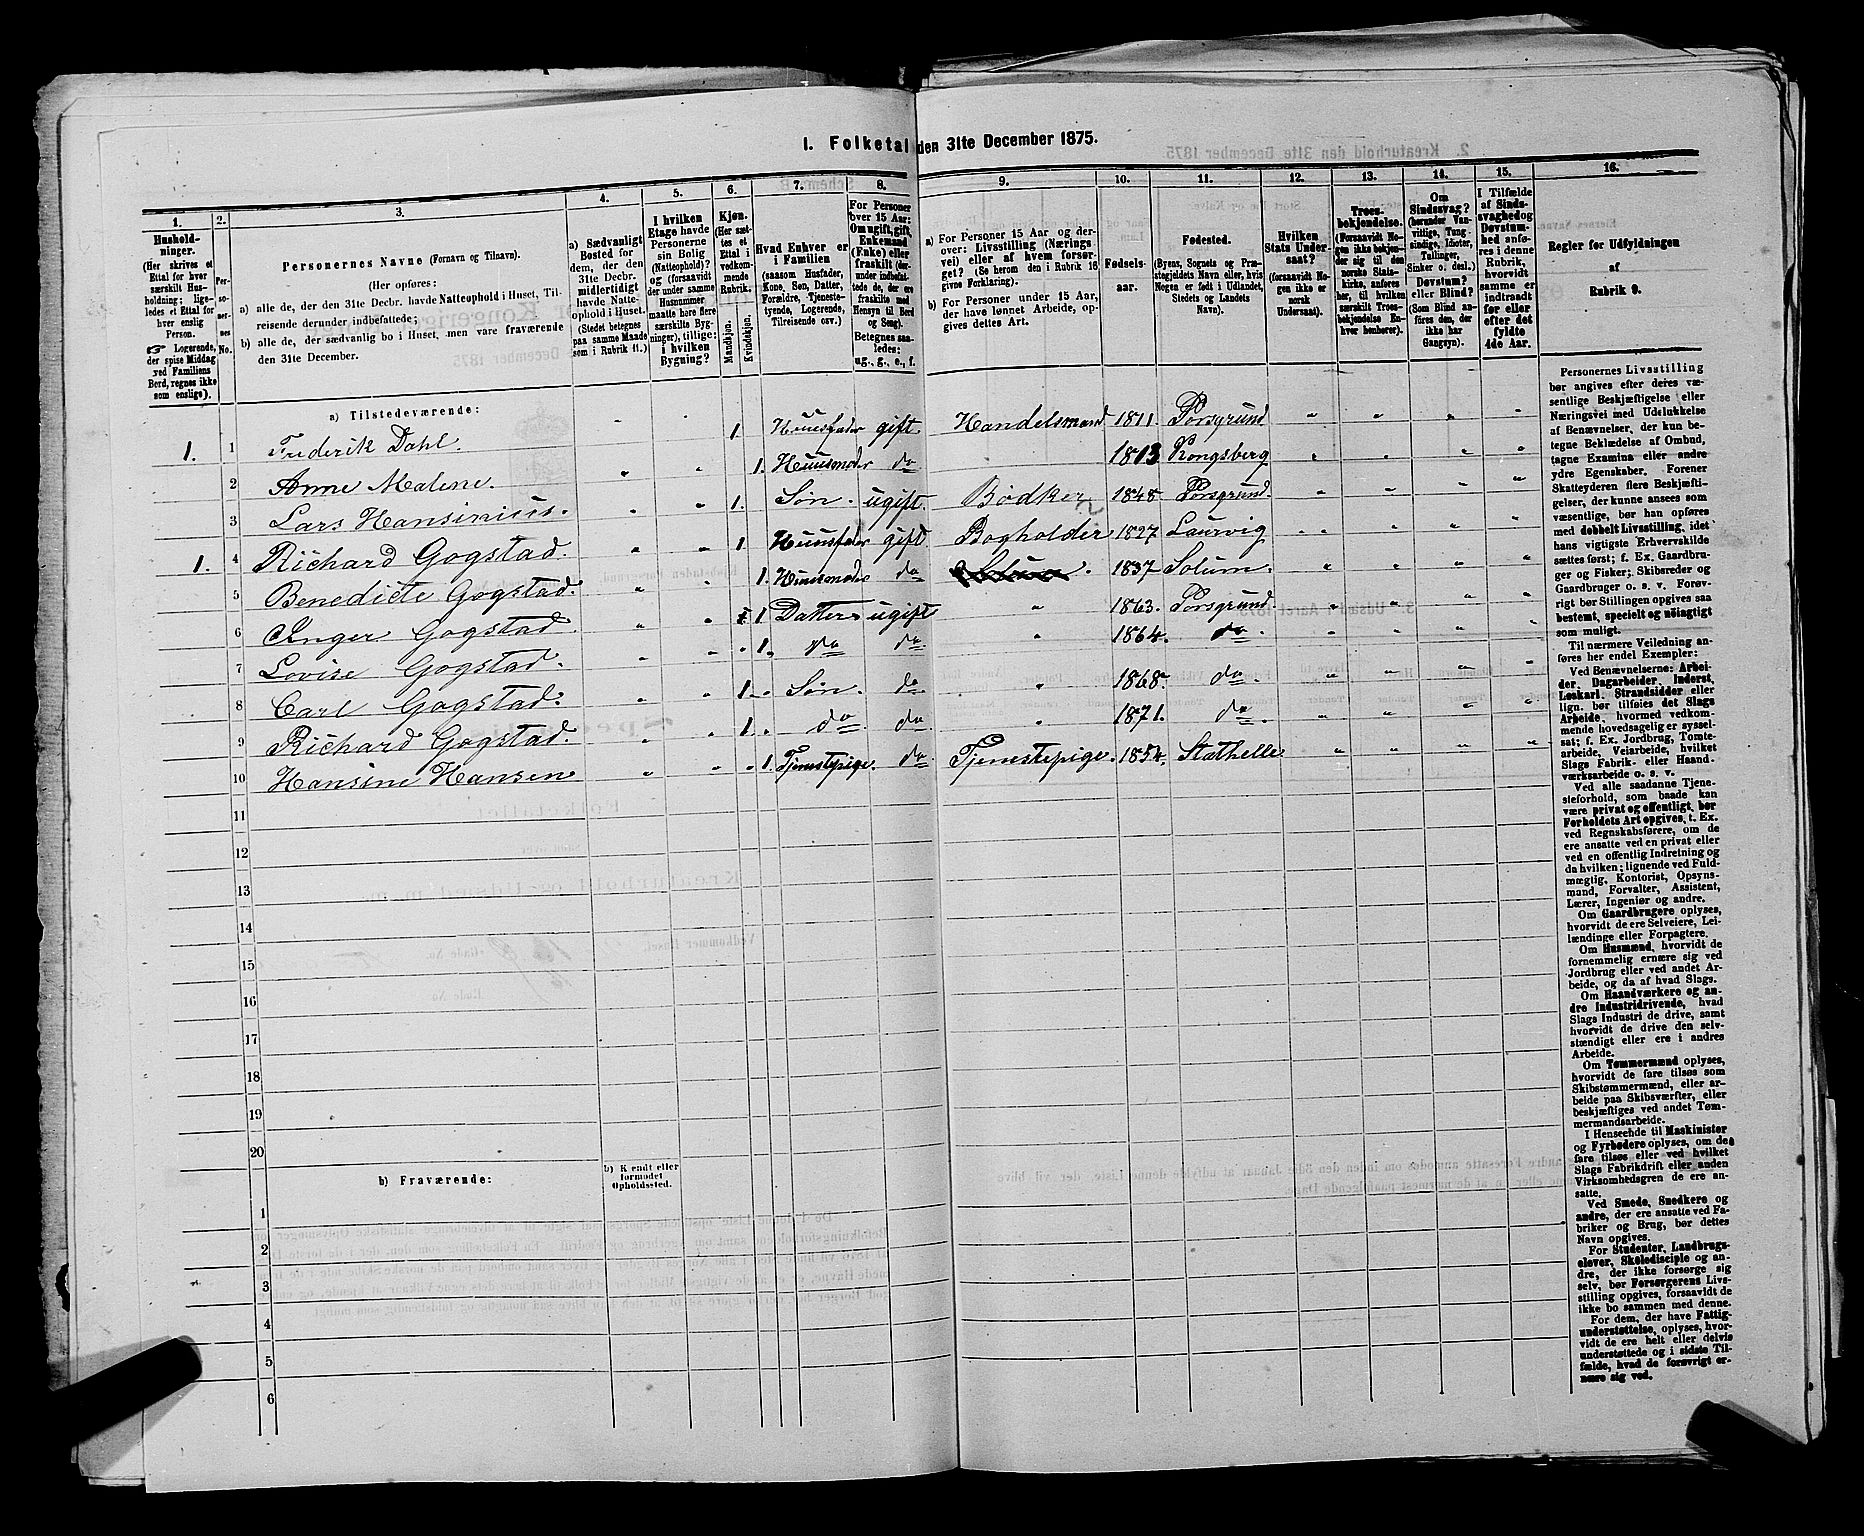 1. Folketal den 31te December 1875.
1. 2. 3. 4. 5. 6. 7. 8. 9. 10. 11. 12. 13. 14. 15. 16.
Hushold-
ninger.
(Her skrives et
Ettal for hver
særskilt Hus-
holdning; lige-
ledes et Ettal for
hver enslig
Person.
☞ Logerende,
der spise Middag
ved Familiens
Bord, regnes ikke
som enslige).
Per-
so-
ner-
nes
No.
Personernes Navne (Fornavn og Tilnavn).
(Her opføres:
a) alle de, der den 31te Decbr. havde Natteophold i Huset, Til-
reisende derunder indbefattede;
b) alle de, der sædvanlig bo i Huset, men vare fraværende
den 31te December.
a) Sædvanligt
Bosted for
dem, der den
31te Decbr.
midlertidigt
havde Natte-
ophold i Huset.
(Stedet betegnes
paa samme Maade
som i Rubrik 11.)
I hvilken
Etage havde
Personerne
sin Bolig
(Natteophold)?
og (forsaavidt
der under samme
Husnummer
maatte høre flere
særskilte Byg-
ninger), tillige:
i hvilken
Bygning?
Kjøn.
(Her sæt-
tes et
Ettal i
vedkom-
mende
Rubrik.
Mandkjøn.
Kvindekjøn.
Hvad Enhver er
i Familien
(saasom Husfader,
Kone, Søn, Datter,
Forældre, Tjeneste-
tyende, Logerende,
Tilreisende osv.)
For Personer
over 15 Aar:
Om ugift, gift,
Enkemand
(Enke) eller
fraskilt (der-
under indbefat-
tede de, der ere
fraskilte med
Hensyn til Bord
og Seng).
Betegnes saa-
ledes:
ug., g., e., f.
a) For Personer 15 Aar og der-
over: Livsstilling (Nærings
vei) eller af hvem forsør-
get? (Se herom den i Rubrik 16
givne Forklaring).
b) For Personer under 15 Aar,
der have lønnet Arbeide, op-
gives dettes Art.
Fødsels-
aar.
Fødested.
(Byens, Sognets og Præ-
stegjeldets Navn eller, hvis
Nogen er født i Udlandet,
Stedets og Landets
Navn).
Hvilken
Stats Under-
saat?
(forsaavidt No-
gen ikke er
norsk
Undersaat).
Troes-
bekjendelse.
(Forsaavidt No-
gen ikke bekjen-
der sig til den
norske Stats-
kirke, anføres
her, til hvilken
særskilt Troes-
bekjendelse En-
hver henhører).
Om
Sindssvag?
(herunder Van-
vittige, Tung-
sindige, Idioter,
Tullinger,
Sinker o. desl.)
Døvstum?
eller Blind?
(Som Blind an-
føres den, der
ikke har
Gangsyn).
I Tilfælde
af Sinds-
svaghed og
Døvstum-
hed anfø-
res i denne
Rubrik,
hvorvidt
samme er
indtraadt
før eller
efter det
fyldte
4de Aar.
Regler for Udfyldningen
af
Rubrik 9.
a) Tilstedeværende:
1. 1 Frederik Dahl. 1 Huusfader gift. Handelsmand 1811 Porsgrund
2 Anne Malene. 1. Huusmoder do 1813 Kongsberg
3 Lars Hansinius. 1. Søn. ugift. Bødker 1848 Porsgrund.
1. 4 Richard Gogstad. 1 Huusfader gift Bogholder 1827 Laurvig
5 Benedicte Gogstad. 1. Huusmoder do 1837 Solum.
6 Inger Gogstad. 1 Datter ugift 1863. Porsgrund.
7 Lovise Gogstad. 1. do do 1864. do.
8 Carl Gogstad. 1. Søn. do 1868. do.
9 Richard Gogstad. 1. do do 1871. do.
10 Hansine Hansen 1. Tjenestepige. do Tjenestepige. 1854. Stathelle
11
12
13
14
15
16
17
18
19
20
b) Fraværende:
b) Kjendt eller
formodet
Opholdssted.
1
2
3
4
5
6
Personernes Livsstilling
bør angives efter deres væ-
sentlige Beskjæftigelse eller
Næringsvei med Udelukkelse
af Benævnelser, der kun be-
tegne Beklædelse af Ombud,
tagne Examina eller andre
ydre Egenskaber. Forener
Skatteyderen flere Beskjæfti-
gelser, der kunne ansees som
væsentlige, bør han opføres
med dobbelt Livsstilling, idet
hans vigtigste Erhvervskilde
sættes først; f. Ex. Gaardbru-
ger og Fisker; Skibsreder og
Gaardbruger o. s. v. Forøv-
rigt bør Stillingen opgives saa
bestemt, specielt og nöiagtigt
som muligt.
Til nærmere Veiledning an-
føres her endel Exempler:
Ved Benævnelserne: Arbei-
der, Dagarbeider, Inderst,
Løskarl, Strandsidder eller
lign. bør tilføies det Slags
Arbeide, hvormed vedkom-
mende hovedsagelig er syssel-
sat; f. Ex. Jordbrug, Tomte-
arbeide, Veiarbeide, hvilket
Slags Fabrik- eller Haand-
værksarbeide o. s. v.
Ved alle saadanne Tjene-
steforhold, som baade kan
være privat og offentligt, bør
Forholdets Art opgives, t. Ex.
ved Regnskabsførere, om de
ere ansatte ved en privat eller
ved en offentlig Indretning og
da hvilken; lignende ved Fuld-
mægtig, Kontorist, Opsyns-
mand, Forvalter, Assistent,
Lærer, Ingeniør og andre.
Om Gaardbrugere oplyses,
hvorvidt de ere Selveiere, Lei-
lændinge eller Forpagtere.
Om Husmænd, hvorvidt de
fornemmelig ernære sig ved
Jordbrug eller ved andet Ar-
beide, og da af hvad Slags.
Om Haandværkere og an-
dre Industridrivende, hvad
Slags Industri de drive, samt
hvorvidt de drive den selv-
stændigt eller ere i andres
Arbeide.
Om Tømmermænd oplyses,
hvorvidt de fare tilsøs som
Skibstømmermænd, eller ar-
beide paa Skibsværfter, eller
beskjæftiges ved andet Tøm-
mermandsarbeide.
I Henseende til Maskinister
og Fyrbødere oplyses, om de
fare tilsøs eller ved hvilket
Slags Fabrikdrift eller anden
Virksomhedsgren de ere an-
satte.
Ved Smede, Snedkere og
andre, der ere ansatte ved Fa-
briker og Brug, bør dettes
Navn opgives.
For Studenter, Landbrugs-
elever, Skoledisciple og an-
dre, der ikke forsørge sig
selv, bør Forsørgerens Livs-
stilling opgives, forsaavidt de
ikke bo sammen med denne.
For dem, der have Fattig-
understøttelse, oplyses, hvor-
vidt de ere helt eller delvis
understøttede og i sidste Til-
fælde, hvad de forøvrigt er-
nære sig ved.